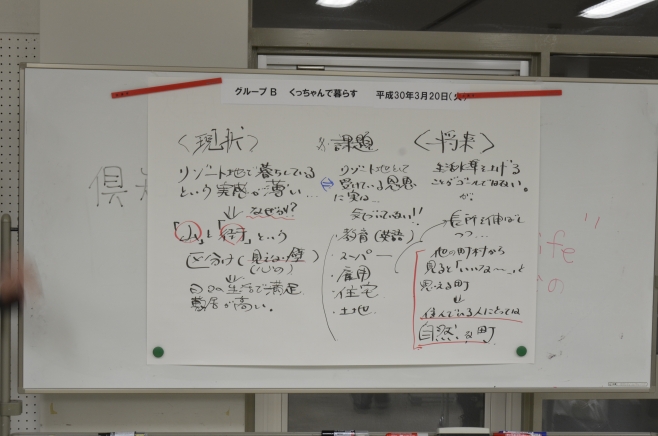 グループB くっちゃんで暮らす 平成30年3月20日(火)
<現状>
リゾート地で暮らしている
という実感が薄い…
なぜか?
「山」と「街」という
区分け(見えない壁)
(心の)
日々の生活で満足
敷居が高い。
課題
リゾート地として
受けている恩恵
に実は…
気づいていない!!
・教育(英語)
・スーパー
・雇用
・住宅
・土地
<将来>
生活水準を上げる
ことがゴールではない。
が、
長所を伸ばし
つつ…
他の町村から
見ると「いいな~」と
思える町
住んでいる人にとっては
自然な町
倶
life
の